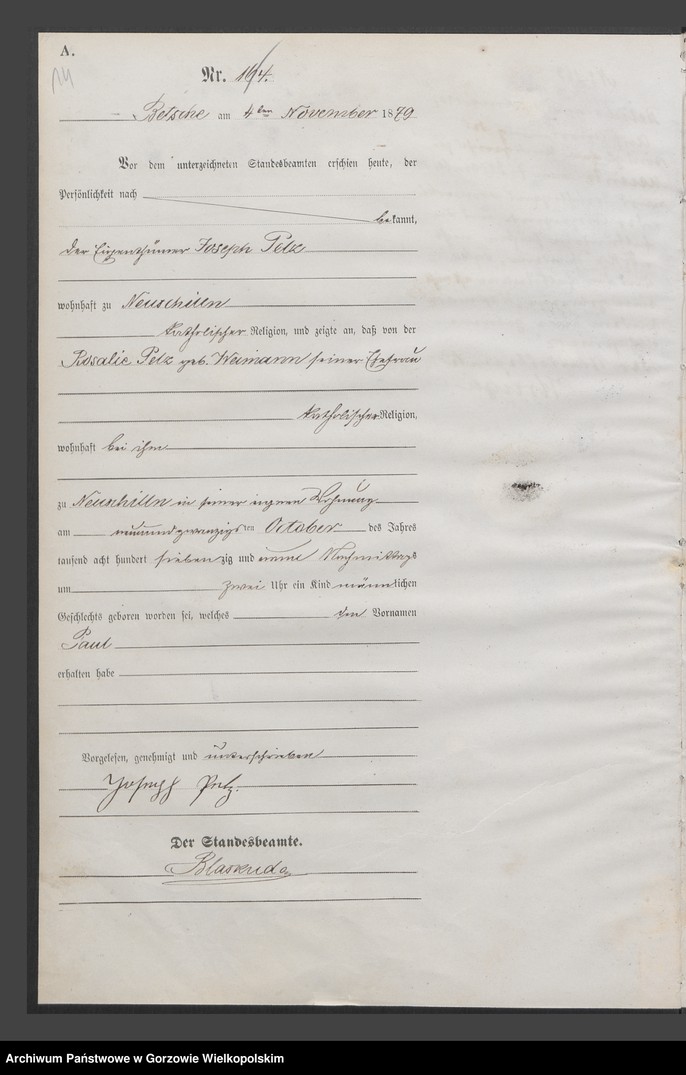 A.
14
Nr. 164.
Betsche am 4ten November 1879
Vor dem unterzeichneten Standesbeamten erschien heute, der
Persönlichkeit nach
bekannt,
der Eigenthümer Joseph Pelz
wohnhaft zu Neuschilln
katholischer Religion, und zeigte an, daß von der
Rosalie Pelz geb. Weimann seiner Ehefrau
katholischer Religion,
wohnhaft bei ihm
zu Neuschilln in seiner Wohnung
am neunundzwanzigsten October des Jahres
tausend acht hundert siebenzig und neun Nachmittags
um zwei Uhr ein Kind männlichen
Geschlechts geboren worden sei, welches den Vornamen
Paul
erhalten habe
Vorgelesen, genehmigt und unterschrieben
Joseph Pelz.
Der Standesbeamte.
Archiwum Państwowe w Gorzowie Wielkopolskim